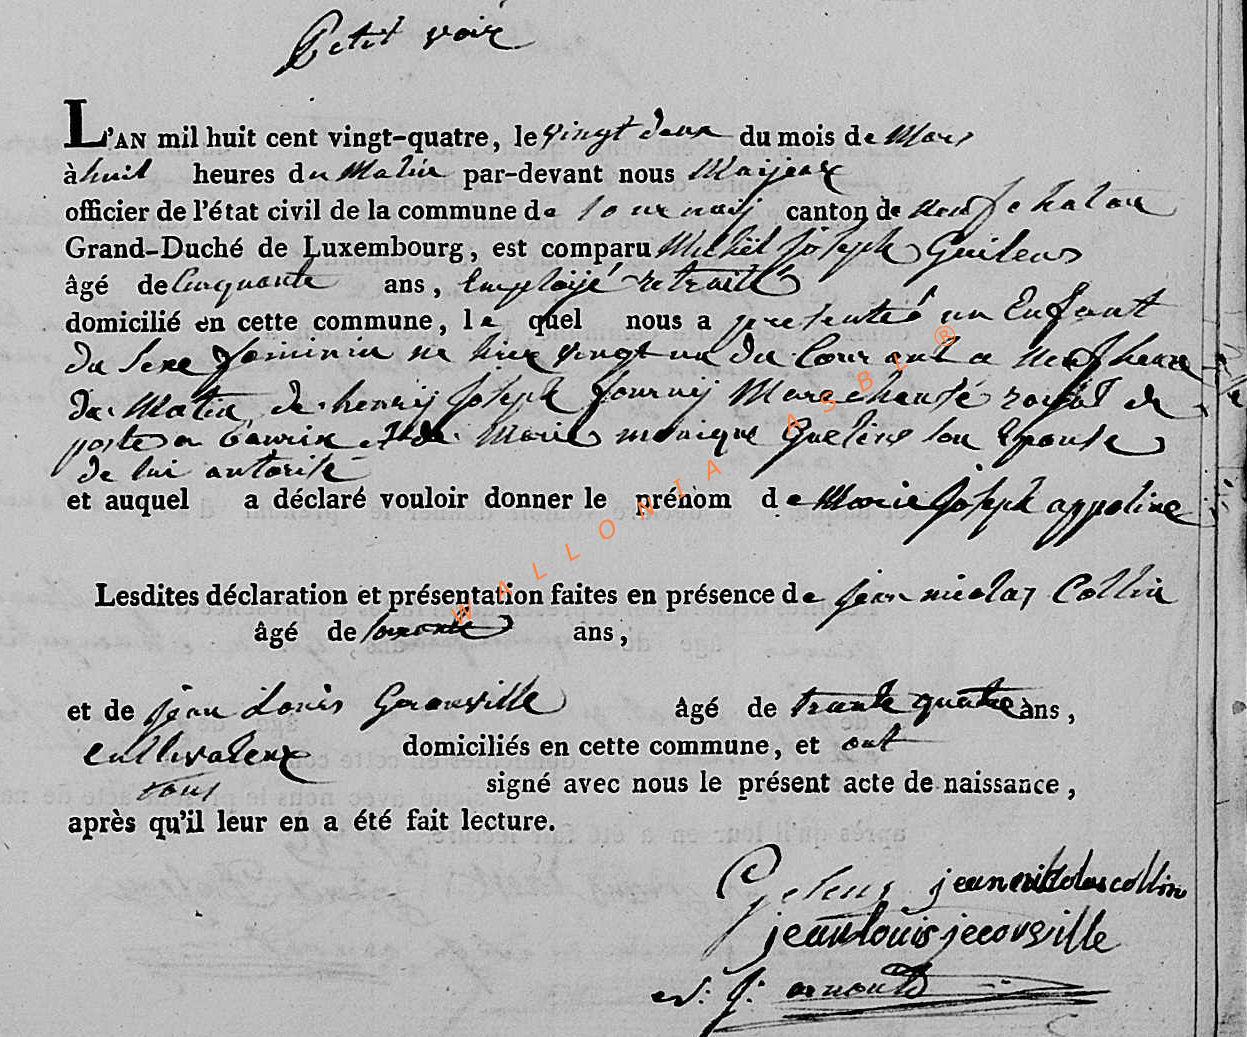 Petit voir
L'AN mil huit cent vingt-quatre, le vingt deux du mois de Mars
à huit heures du Matin par-devant nous Maijeur
officier de l'état civil de la commune de tournaij canton de neufchatau
Grand-Duché de Luxembourg, est comparu Michel Joseph Guileus
âgé de Cinquante ans, Emploijé retraité
domicilié en cette commune, le quel nous a presenté un Enfant
du Sexe feminin né hier vingt un du Courant a neuf heure
du Matin de henrij Joseph fournij Marechaussé roijal de
poste a et de Marie monique Guelens son Epouse
de lui autorisé
et auquel a déclaré vouloir donner le prénom de Marie Joseph appoline
WALLONIA ASBL ®
Lesdites déclaration et présentation faites en présence de jean nicolas Collin
âgé de soixante ans,
et de jean Louis Gerouville âgé de trante quatre ans,
cultivateur domiciliés en cette commune, et ont
tous signé avec nous le présent acte de naissance,
après qu'il leur en a été fait lecture.
Gelens jean nicolas collin
jean louis jerouville
j: arnould